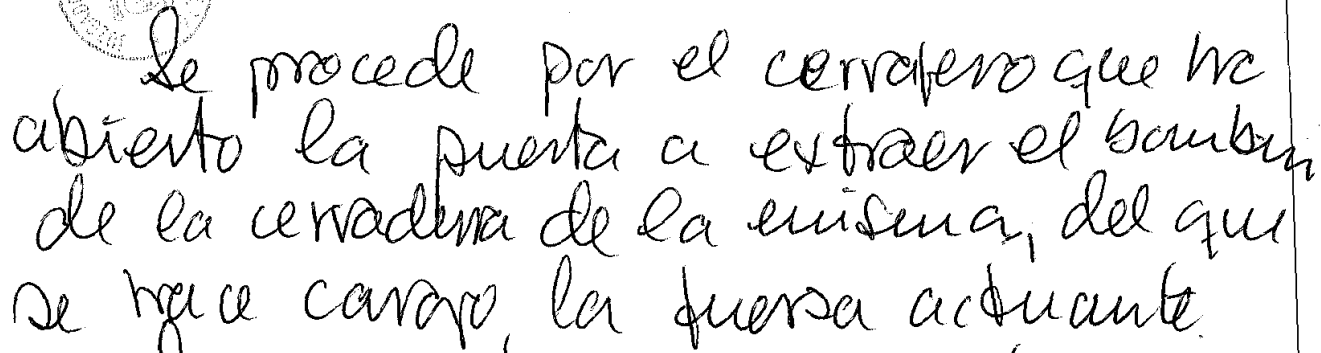 Se procede por el cerrajero que ha
abierto la puerta a extraer el bombín
de la cerradura de la misma, del que
se hace cargo, la fuerza actuante.